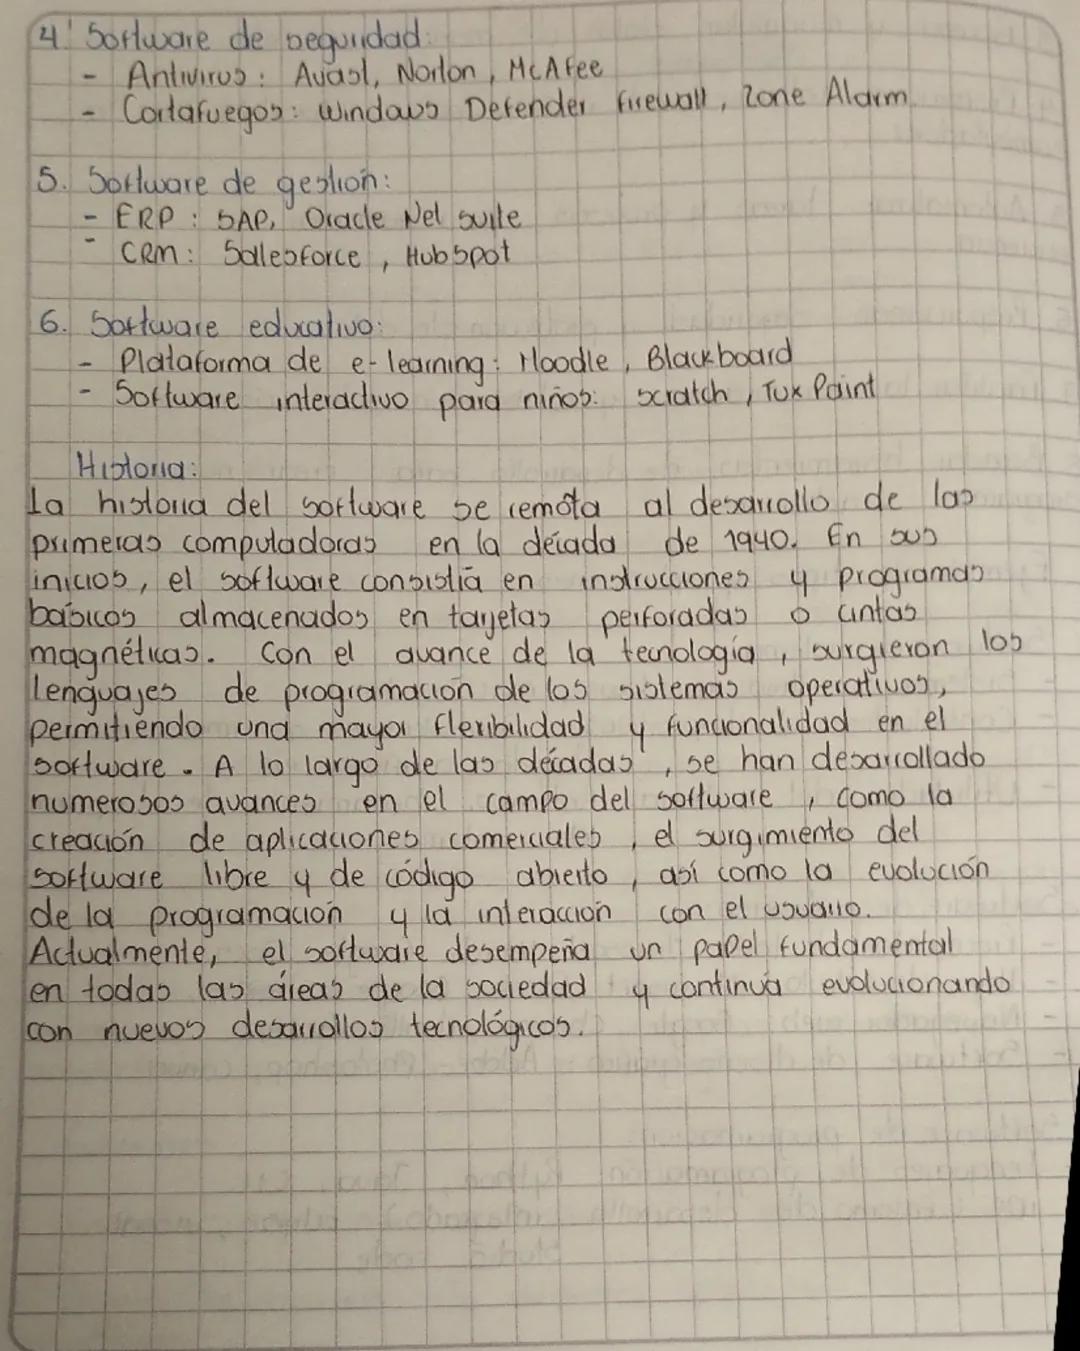 4. Software de seguridad:
- Antivirus: Avast, Norton, McAfee
- Cortafuegos: Windows Defender firewall, Zone Alarm.
5. Software de gestión:
- ERP: SAP, Oracle Net suite
- CRM: Sallesforce, HubSpot
6. Software educativo:
- Plataforma de e-learning: Moodle, Blackboard
- Software interactivo para niños: scratch, Tux Paint
Historia:
La historia del software se remota al desarrollo de las
primeras computadoras en la década de 1940. En sus
inicios, el software consistía en instrucciones y programas
básicos almacenados en tarjetas perforadas o cintas
magnéticas. Con el avance de la tecnología, surgieron los
lenguajes de programación de los sistemas operativos,
permitiendo una mayor flexibilidad y funcionalidad en el
software. A lo largo de las décadas, se han desarrollado
numerosos avances en el campo del software, como la
creación de aplicaciones comerciales, el surgimiento del
software libre y de código abierto, así como la evolución
de la programación y la interacción con el usuario.
Actualmente, el software desempeña un papel fundamental
en todas las áreas de la sociedad y continúa evolucionando
con nuevos desarrollos tecnológicos.